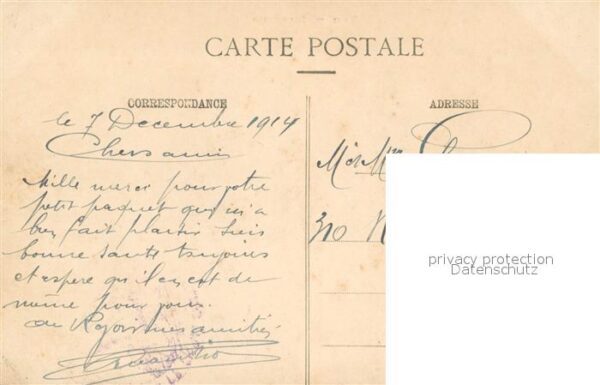 CARTE POSTALE
CORRESPONDANCE
ADRESSE
le 7 Decembre 1914
Chers amis
Mille merci pour votre
petit paquet qui m'a
bien fait plaisir suis
bonne santé toujours
et espere qu'il en est de
même pour vous.
amitiés
M et Mme
310
privacy protection
Datenschutz